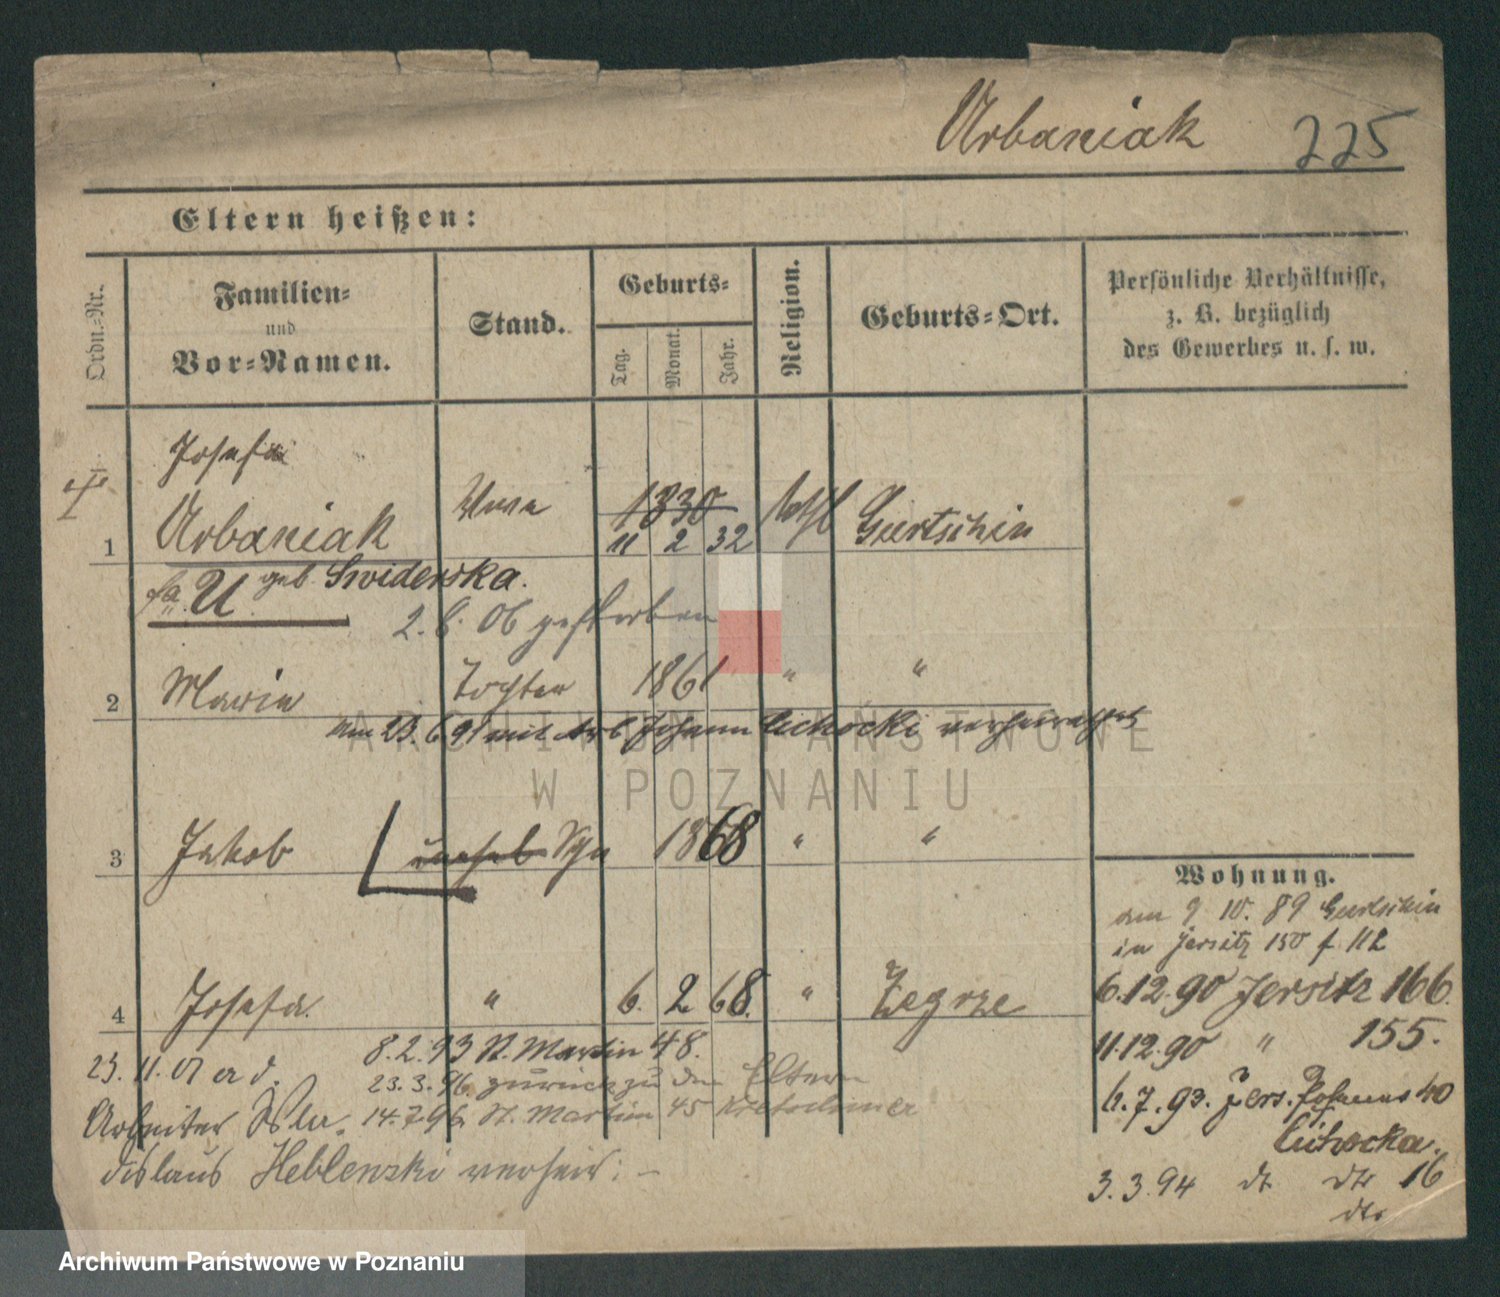 Urbaniak 225
Eltern heißen:
Ordn.-Nr.
Familien-
und
Vor-Namen.
Stand.
Geburts-
Tag.
Monat.
Jahr.
Religion.
Geburts-Ort.
Persönliche Verhältnisse,
z. B. bezüglich
des Gewerbes u. s. w.
Josefa
1 Urbaniak 1830 kath Gurtschin
11 2 32
U geb. Swiderska.
2. 6. 06 gestorben
2 Maria Tochter 1861 " "
am 23.6.91 mit Arb Johann Cichocki verheirathet
3 Jakob Sohn 1868 " "
4 Josefa. " 6. 2 68. " Zegrze
23. 11. 01 a. d.
Arbeiter Wla-
dislaus Heblenski verheir: –
8.2.93 St. Martin 48.
23.3.96. zurück zu den Eltern
14.7.96 St. Martin 45 Kretschmer
Wohnung.
am 9 10. 89 Gurtschin
in Jersitz 150 f. 112
6.12.90 Jersitz 166.
11.12.90 " 155.
6.7.93. Jers. Johannes 40
Cichocka.
3.3.94 dt dto 16
dto
ARCHIWUM PAŃSTWOWE
W POZNANIU
Archiwum Państwowe w Poznaniu